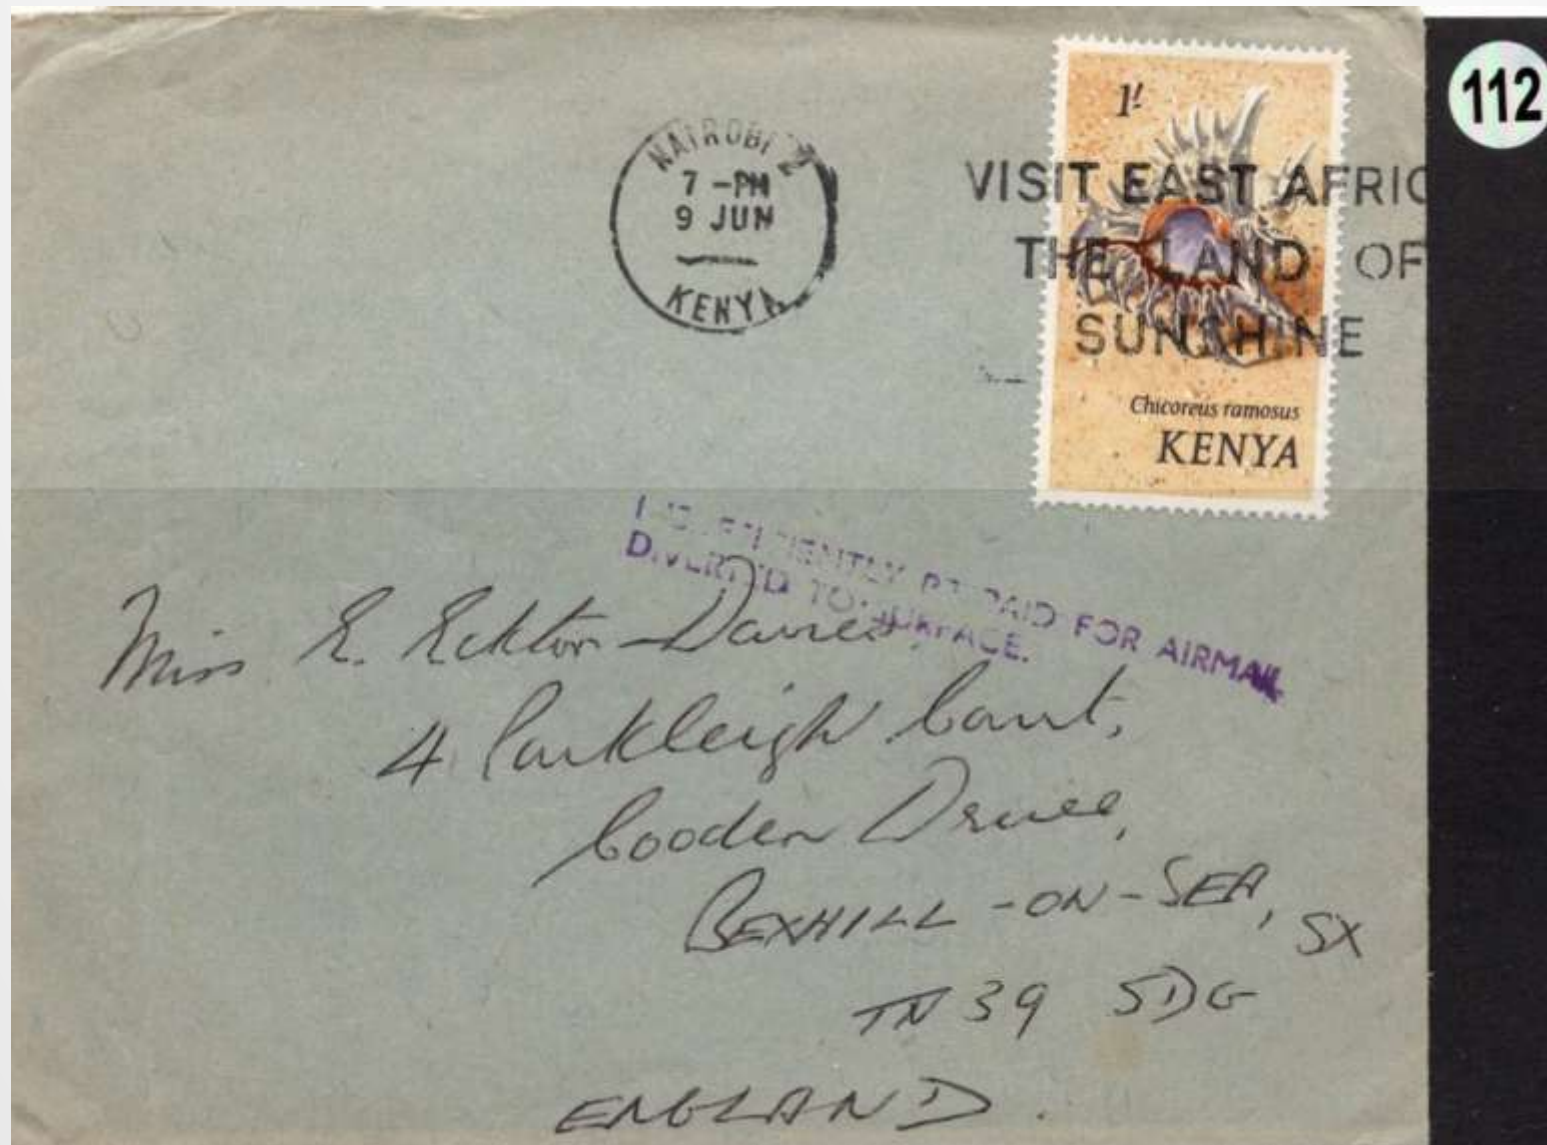 112
1/-
NAIROBI 2
7 -PM
9 JUN
KENYA
VISIT EAST AFRIC
THE LAND OF
SUNSHINE
Chicoreus ramosus
KENYA
INSUFFICIENTLY PREPAID FOR AIRMAIL
DIVERTED TO SURFACE.
Miss E. Eckton-Davies,
4 Parkleigh Court,
Cooden Drive,
BEXHILL-ON-SEA, SX
TN39 5DG
ENGLAND.